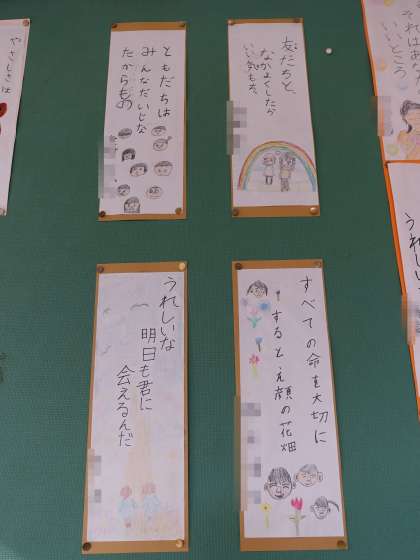 それはあな
いいところ
友だちと、
なかよくしたら
いい気もち
ともだちは
みんなだいじな
たからもの
やさしさは
うれしい
すべての命を大切に
するとえ顔の花畑
うれしいな
明日も君に
会えるんだ